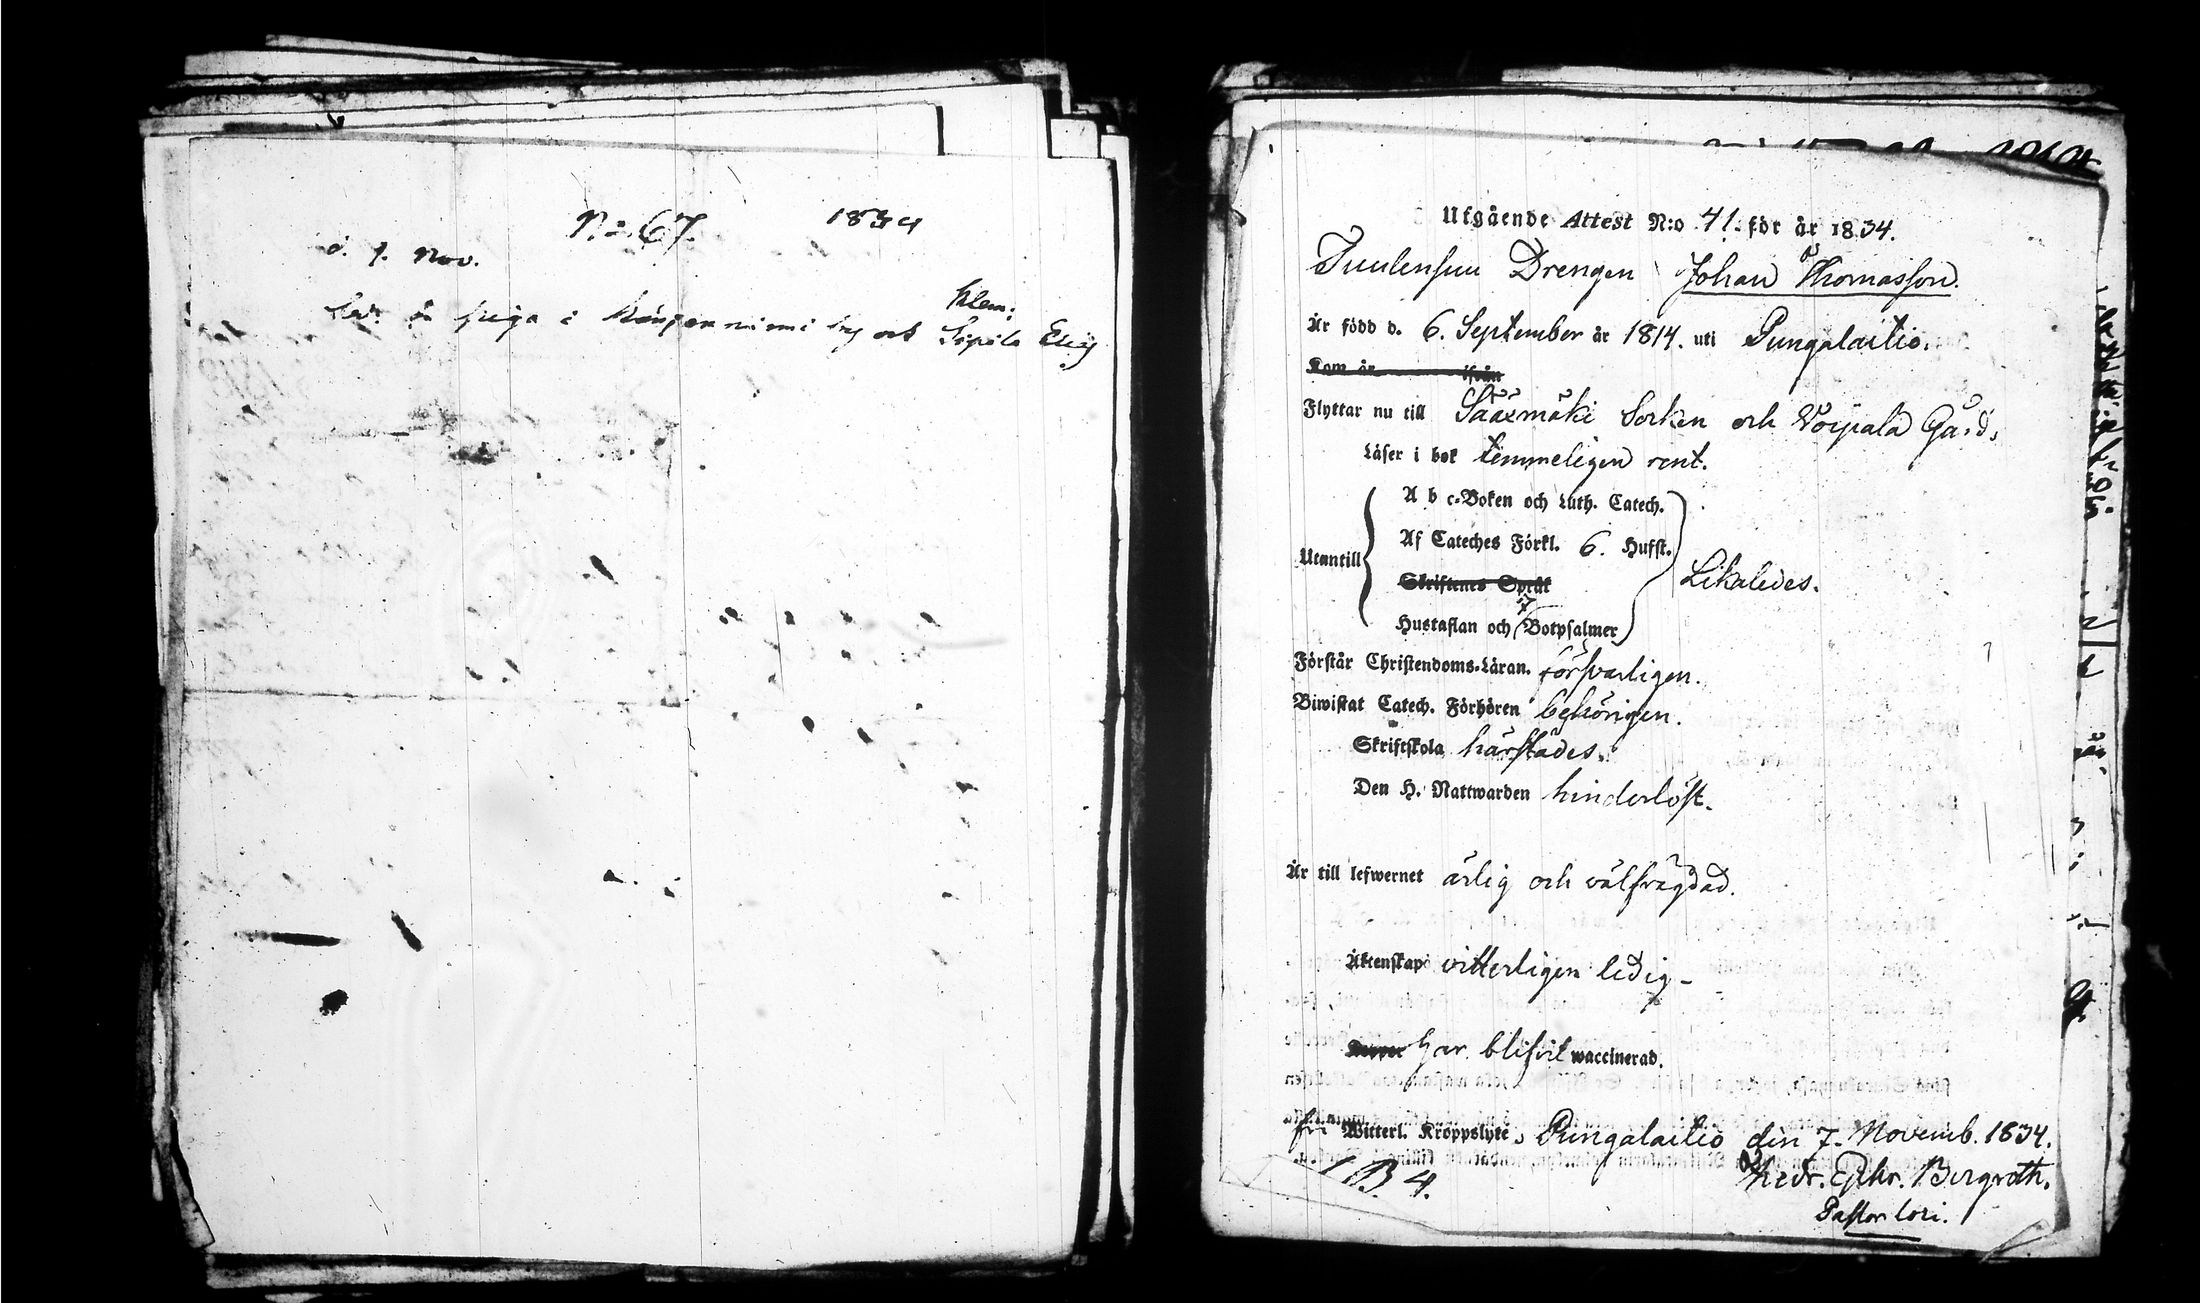 N:o 67. 1834
d. 7. Nov.
Klem:
piga i by och Sipilä
Utgående Attest N:o 41. för år 1834.
Tuulensuu Drengen Johan Thomasson.
Är född d. 6. September år 1814. uti Pungalaitio.
Kom år ifrån
Flyttar nu till Sääxmäki Sorken och Voipala Gård,
Läser i bok temmeligen rent.
Utantill
A b c-Boken och Luth. Catech.
Af Cateches Förkl. 6. Hufst.
Likaledes.
Skriftenes Språk
7
Hustaflan och Botpsalmer
Förstår Christendoms-Läran. försvarligen.
Biwistat Catech. Förhören behörigen.
Skriftskola härstädes.
Den H. Nattwarden hinderlöst.
Är till lefwernet ärlig och välfrägdad.
Äktenskap vitterligen ledig -
har blifvit waccinerad.
fri Witterl. Kroppslyte, Pungalaitio den 7. Novemb. 1834.
Thedr. Ephr. Bergroth.
B. 4.
Pastor loci.